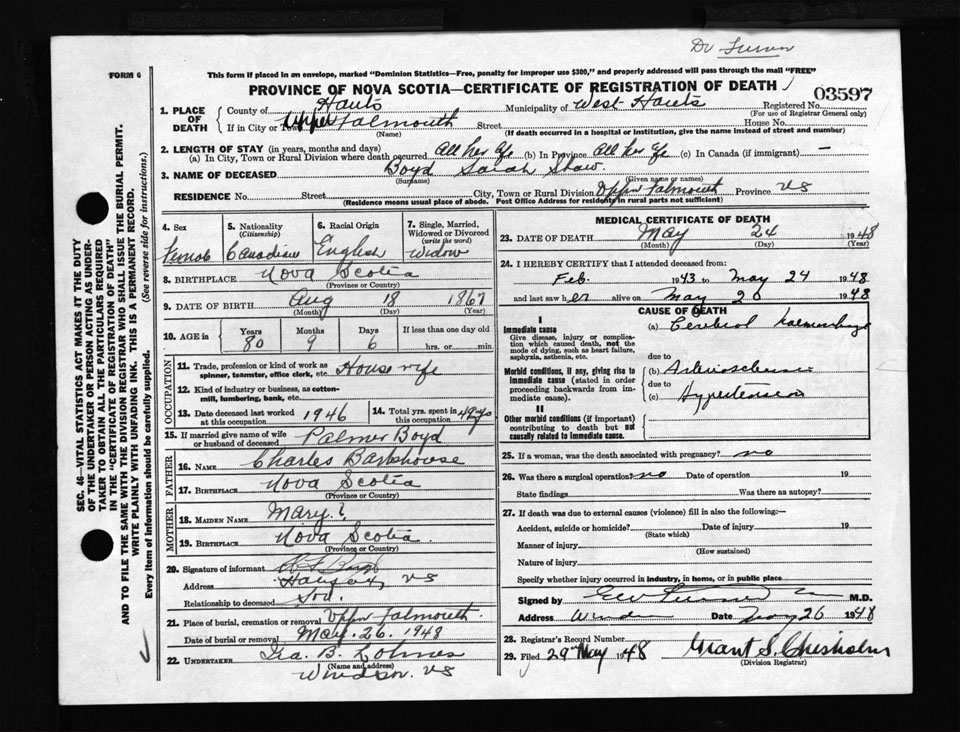 Dr Turner
FORM 6
This form if placed in an envelope, marked "Dominion Statistics—Free, penalty for improper use $300," and properly addressed will pass through the mail "FREE"
PROVINCE OF NOVA SCOTIA—CERTIFICATE OF REGISTRATION OF DEATH
03597
1. PLACE OF DEATH
County of Hants Municipality of West Hants Registered No.
(For use of Registrar General only)
If in City or Town Upper Falmouth Street House No.
(Name) (If death occurred in a hospital or institution, give the name instead of street and number)
2. LENGTH OF STAY (in years, months and days)
(a) In City, Town or Rural Division where death occurred All her life (b) In Province All her life (c) In Canada (if immigrant) —
3. NAME OF DECEASED Boyd Sarah Shaw
(Surname) (Given name or names)
RESIDENCE No. Street City, Town or Rural Division Upper Falmouth Province NS
(Residence means usual place of abode. Post Office Address for residents in rural parts not sufficient)
4. Sex Female
5. Nationality (Citizenship) Canadian
6. Racial Origin English
7. Single, Married, Widowed or Divorced (write the word) Widow
8. BIRTHPLACE Nova Scotia
(Province or Country)
9. DATE OF BIRTH Aug 18 1867
(Month) (Day) (Year)
10. AGE in Years 80 Months 9 Days 6 If less than one day old hrs. or min
OCCUPATION
11. Trade, profession or kind of work as spinner, teamster, office clerk, etc. Housewife
12. Kind of industry or business, as cotton-mill, lumbering, bank, etc.
13. Date deceased last worked at this occupation 1946
14. Total yrs. spent in this occupation
15. If married give name of wife or husband of deceased Palmer Boyd
FATHER
16. NAME Charles Barkhouse
17. BIRTHPLACE Nova Scotia
(Province or Country)
MOTHER
18. MAIDEN NAME Mary ?
19. BIRTHPLACE Nova Scotia
(Province or Country)
20. Signature of informant
Address Halifax, NS
Relationship to deceased Son.
21. Place of burial, cremation or removal Upper Falmouth.
Date of burial or removal May. 26. 1948
22. UNDERTAKER Ira. B. Lohnes
(Name and address)
Windsor. NS
MEDICAL CERTIFICATE OF DEATH
23. DATE OF DEATH May 24 1948
(Month) (Day) (Year)
24. I HEREBY CERTIFY that I attended deceased from:
Feb 1943 to May 24 1948
and last saw her alive on May 20 1948
CAUSE OF DEATH
I
Immediate cause
Give disease, injury or complication which caused death, not the mode of dying, such as heart failure, asphyxia, asthenia, etc.
(a) Cerebral haemorrhage
due to
Morbid conditions, if any, giving rise to immediate cause (stated in order proceeding backwards from immediate cause).
(b) Arteriosclerosis
due to
(c) Hypertension
II
Other morbid conditions (if important) contributing to death but not causally related to immediate cause.
25. If a woman, was the death associated with pregnancy? no
26. Was there a surgical operation? no Date of operation 19
State findings Was there an autopsy?
27. If death was due to external causes (violence) fill in also the following:—
Accident, suicide or homicide? Date of injury 19
(State which)
Manner of injury
(How sustained)
Nature of injury
Specify whether injury occurred in industry, in home, or in public place
Signed by M.D.
Address Date May 26 1948
28. Registrar's Record Number
29. Filed 29 May 1948 Grant S. Chisholm
(Division Registrar)
SEC. 46—VITAL STATISTICS ACT MAKES IT THE DUTY
OF THE UNDERTAKER OR PERSON ACTING AS UNDER-
TAKER TO OBTAIN ALL THE PARTICULARS REQUIRED
IN THE "CERTIFICATE OF REGISTRATION OF DEATH"
AND TO FILE THE SAME WITH THE DIVISION REGISTRAR WHO SHALL ISSUE THE BURIAL PERMIT.
WRITE PLAINLY WITH UNFADING INK. THIS IS A PERMANENT RECORD.
Every item of information should be carefully supplied. (See reverse side for instructions.)